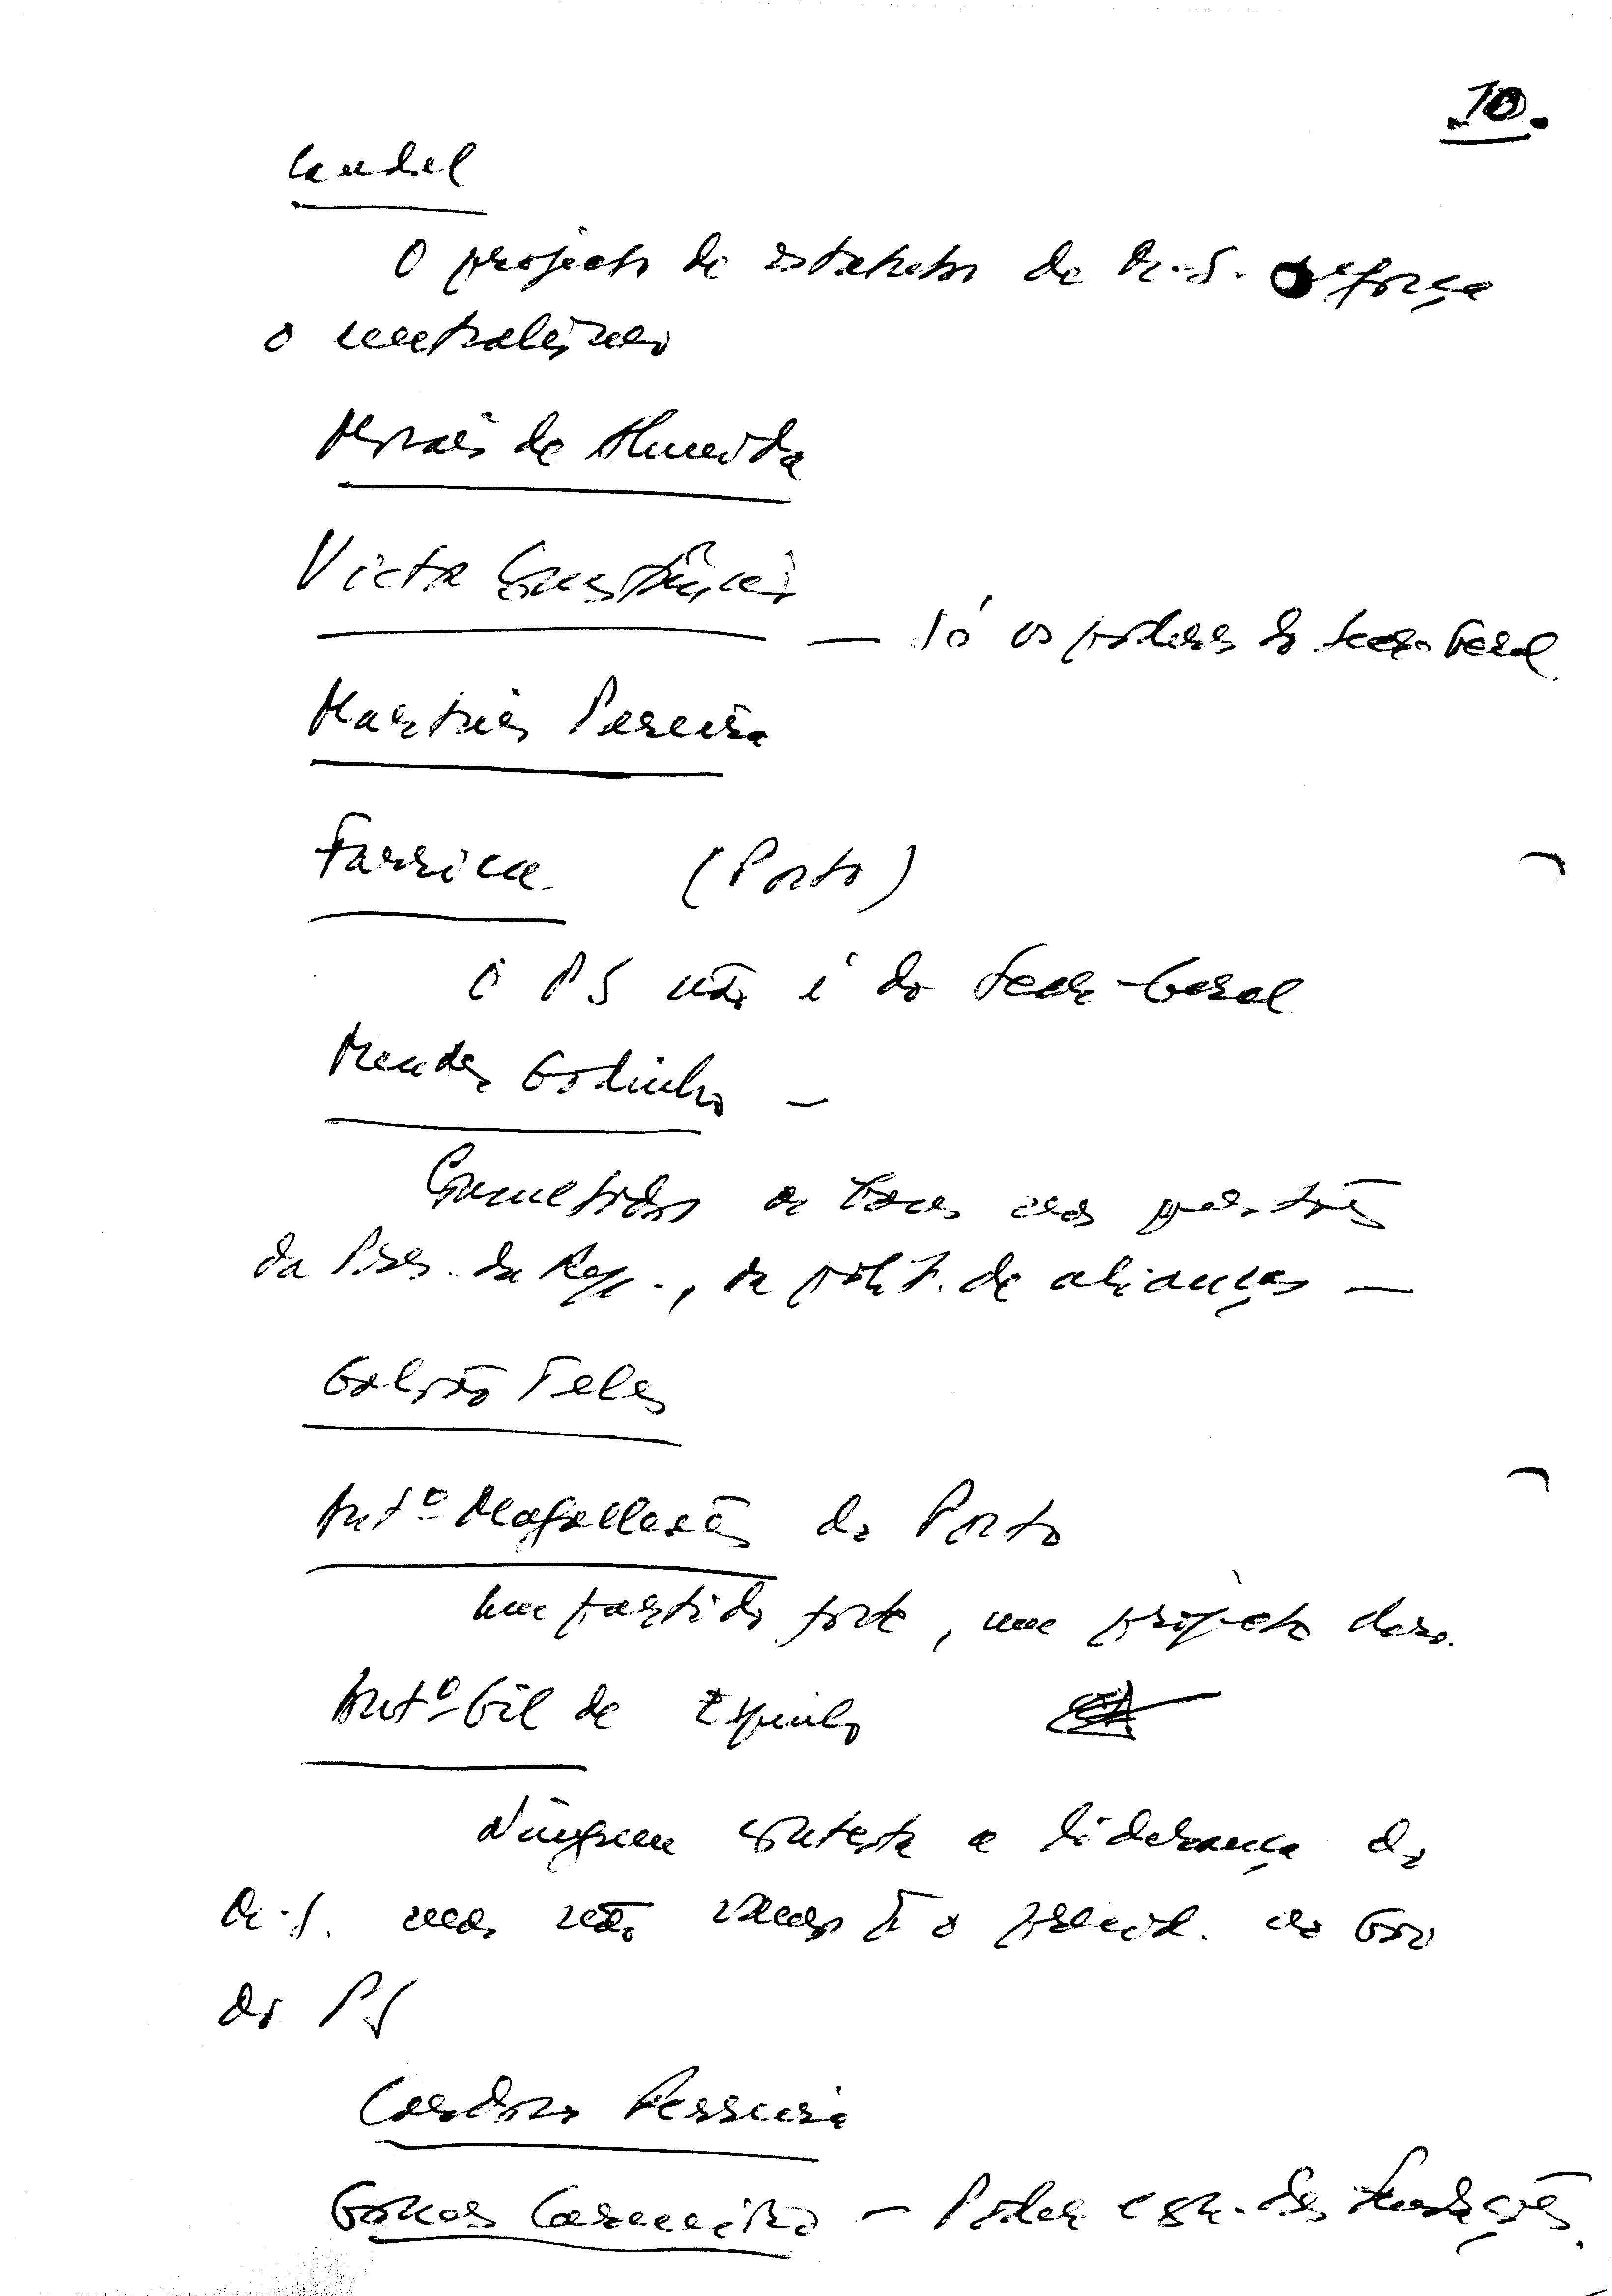 10.
Candal
O projecto de estatutos de M.S. reforça
o centralismo
Morais de Almeida
Victor Constâncio
— Só os poderes do Secr. Geral
Martins Pereira
Farrica (Porto)
O PS não é do Secr-Geral
Mendes Godinho —
as bases nas questões
da Pres. da Rep., da polít. de alianças —
Galvão Teles
Antº Magalhães do Porto
Um partido forte, um projecto claro.
Antº Gil de Espinho
Ninguem contesta a liderança de
M.S. mas não vamos p'ª o
do PS
Cardoso Ferreira
Gomes Carneiro — Poder das Fundações.